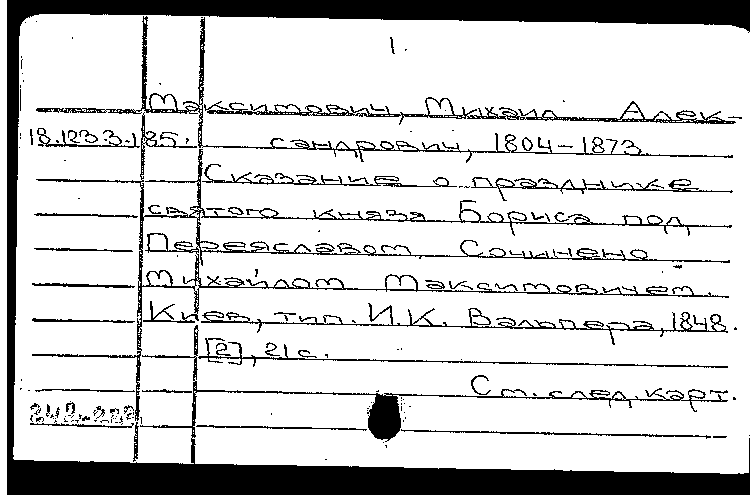 1.
Максимович, Михаил Алек-
18.123.3.185. сандрович, 1804-1873.
Сказание о празднике
святого князя Бориса под
Переяславом. Сочинено
Михайлом Максимовичем.
Киев, тип. И.К. Вальпера, 1848.
[2], 21 с.
См. след. карт.